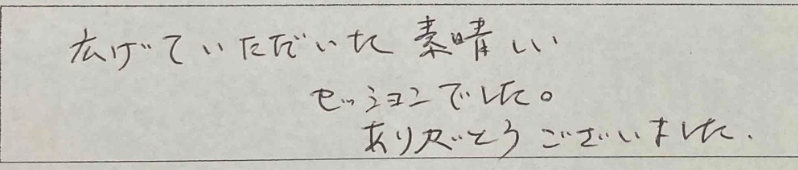 広げていただいた 素晴しい
セッションでした。
ありがとうございました.